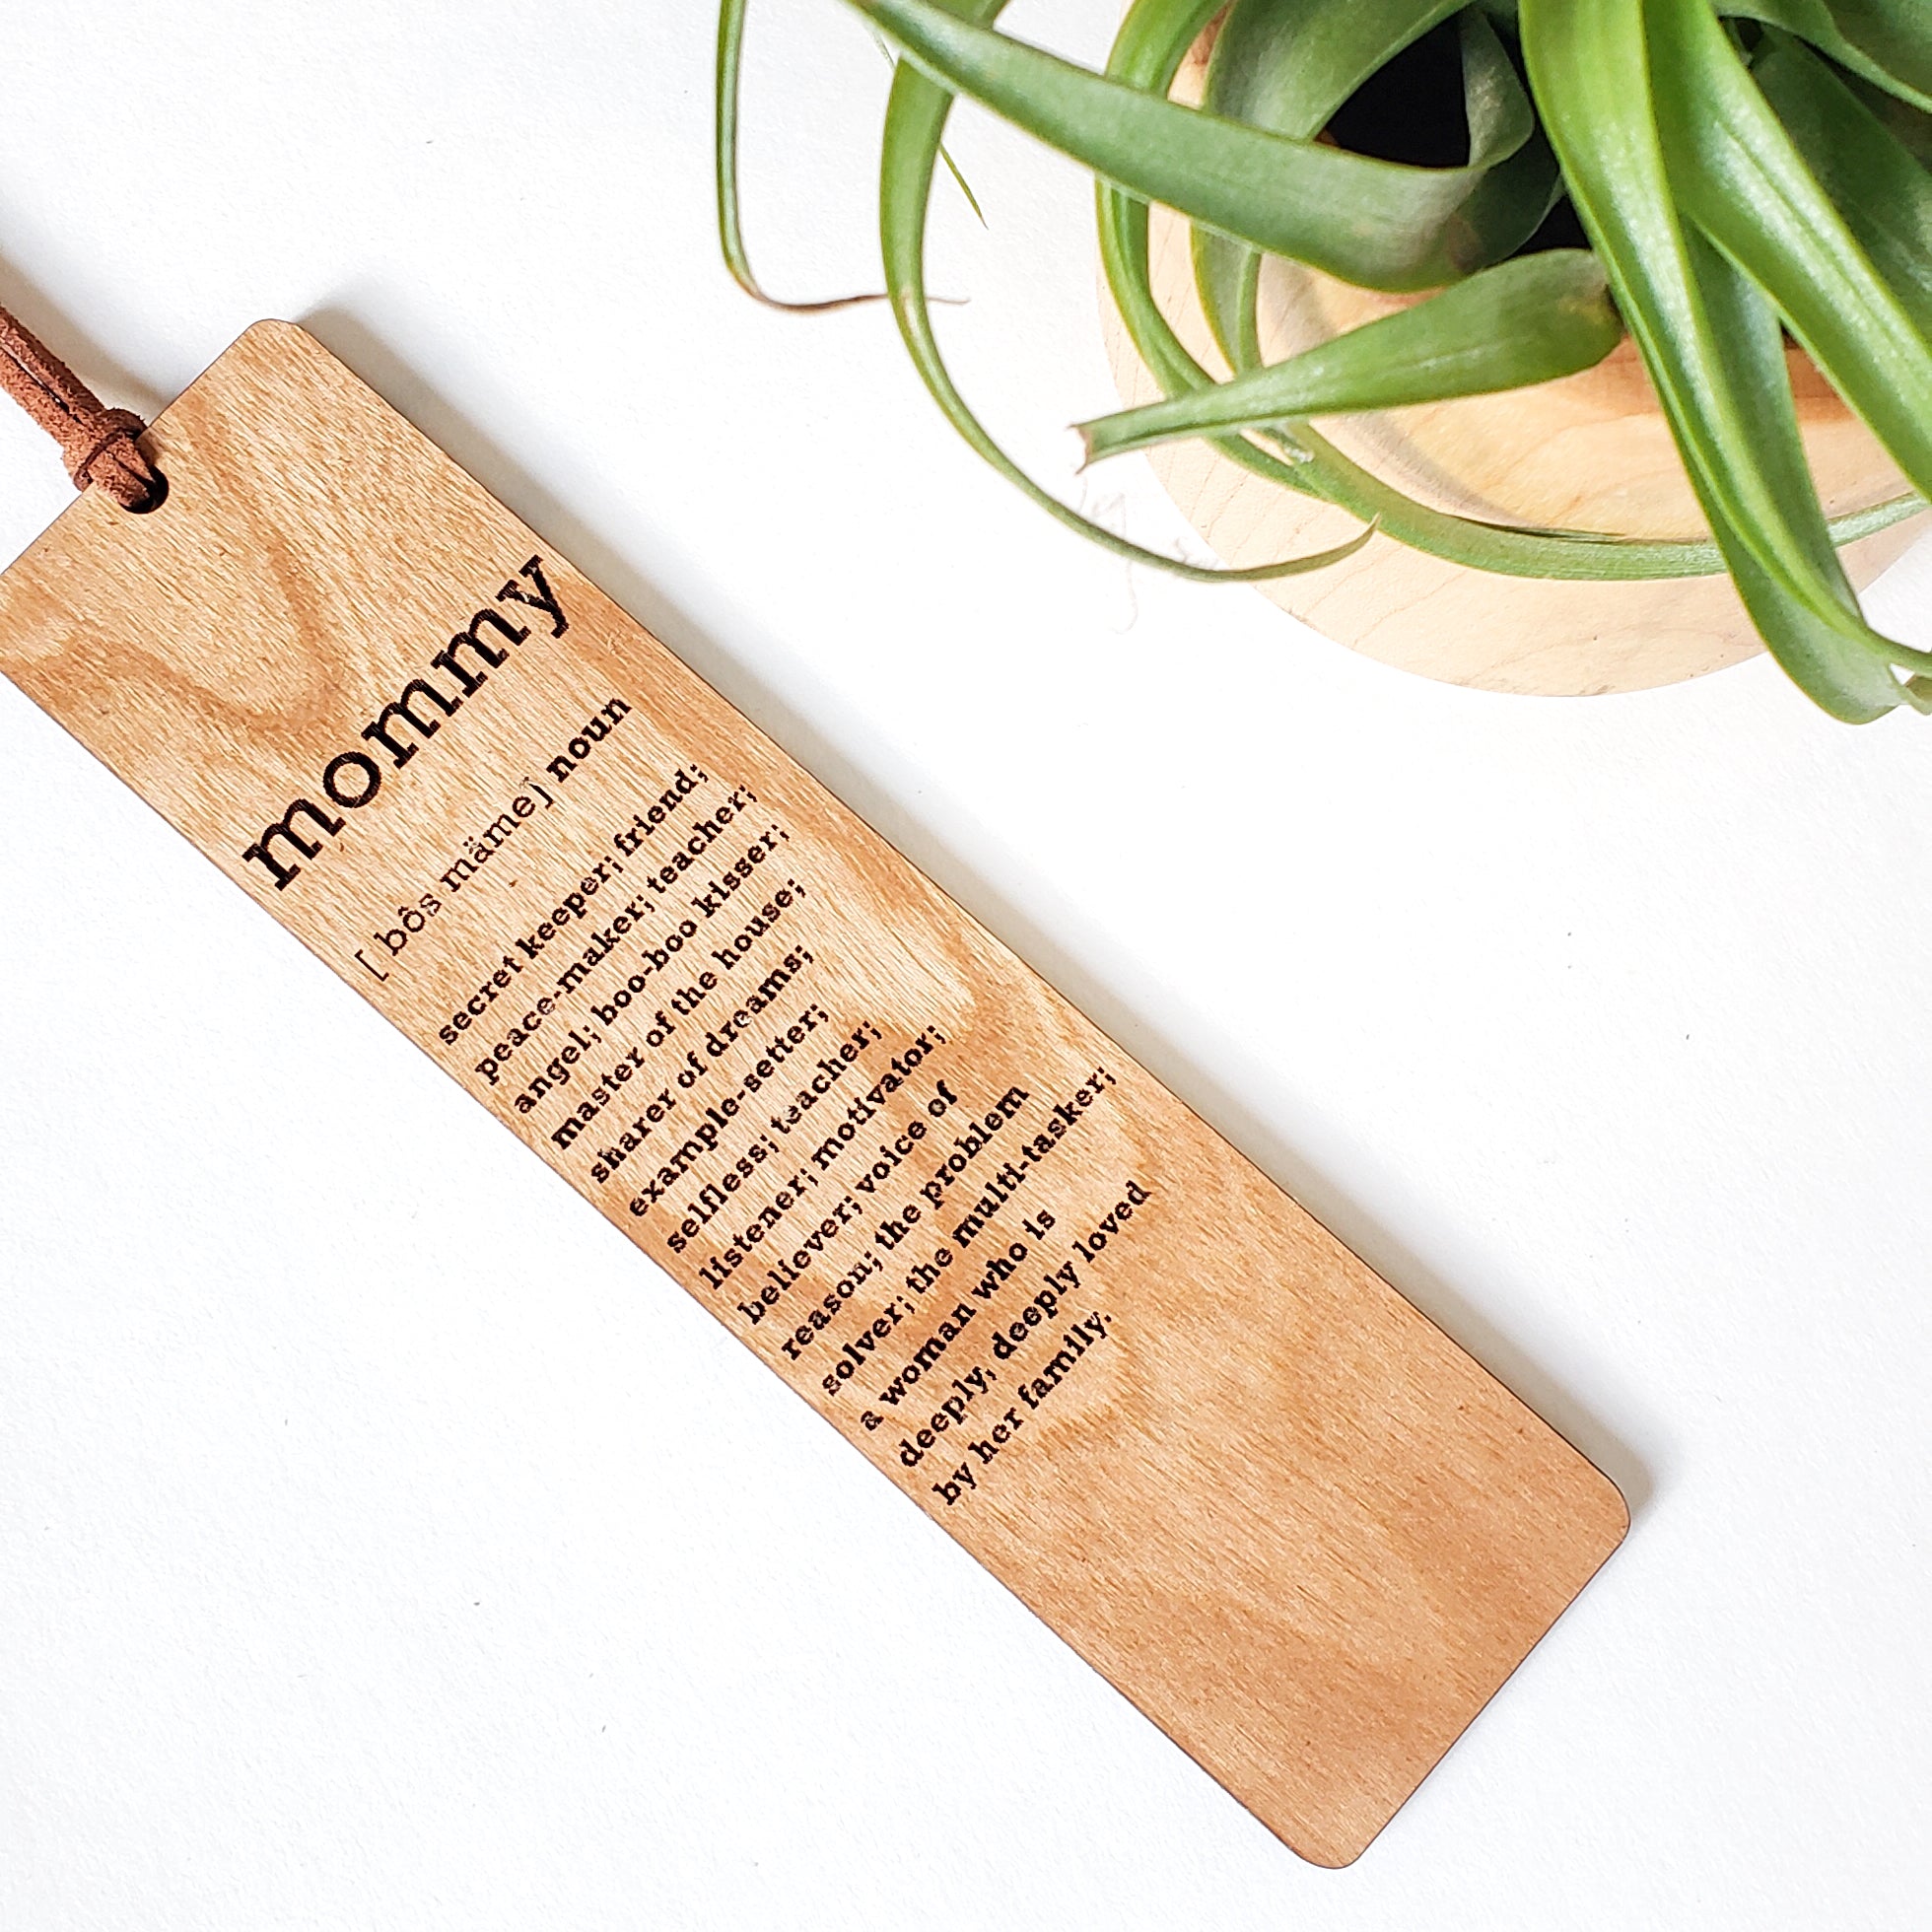 mommy
[ bôs mäme] noun
secret keeper; friend;
peace-maker; teacher;
angel; boo-boo kisser;
master of the house;
sharer of dreams;
example-setter;
selfless; teacher;
listener; motivator;
believer; voice of
reason; the problem
solver; the multi-tasker;
a woman who is
deeply, deeply loved
by her family.